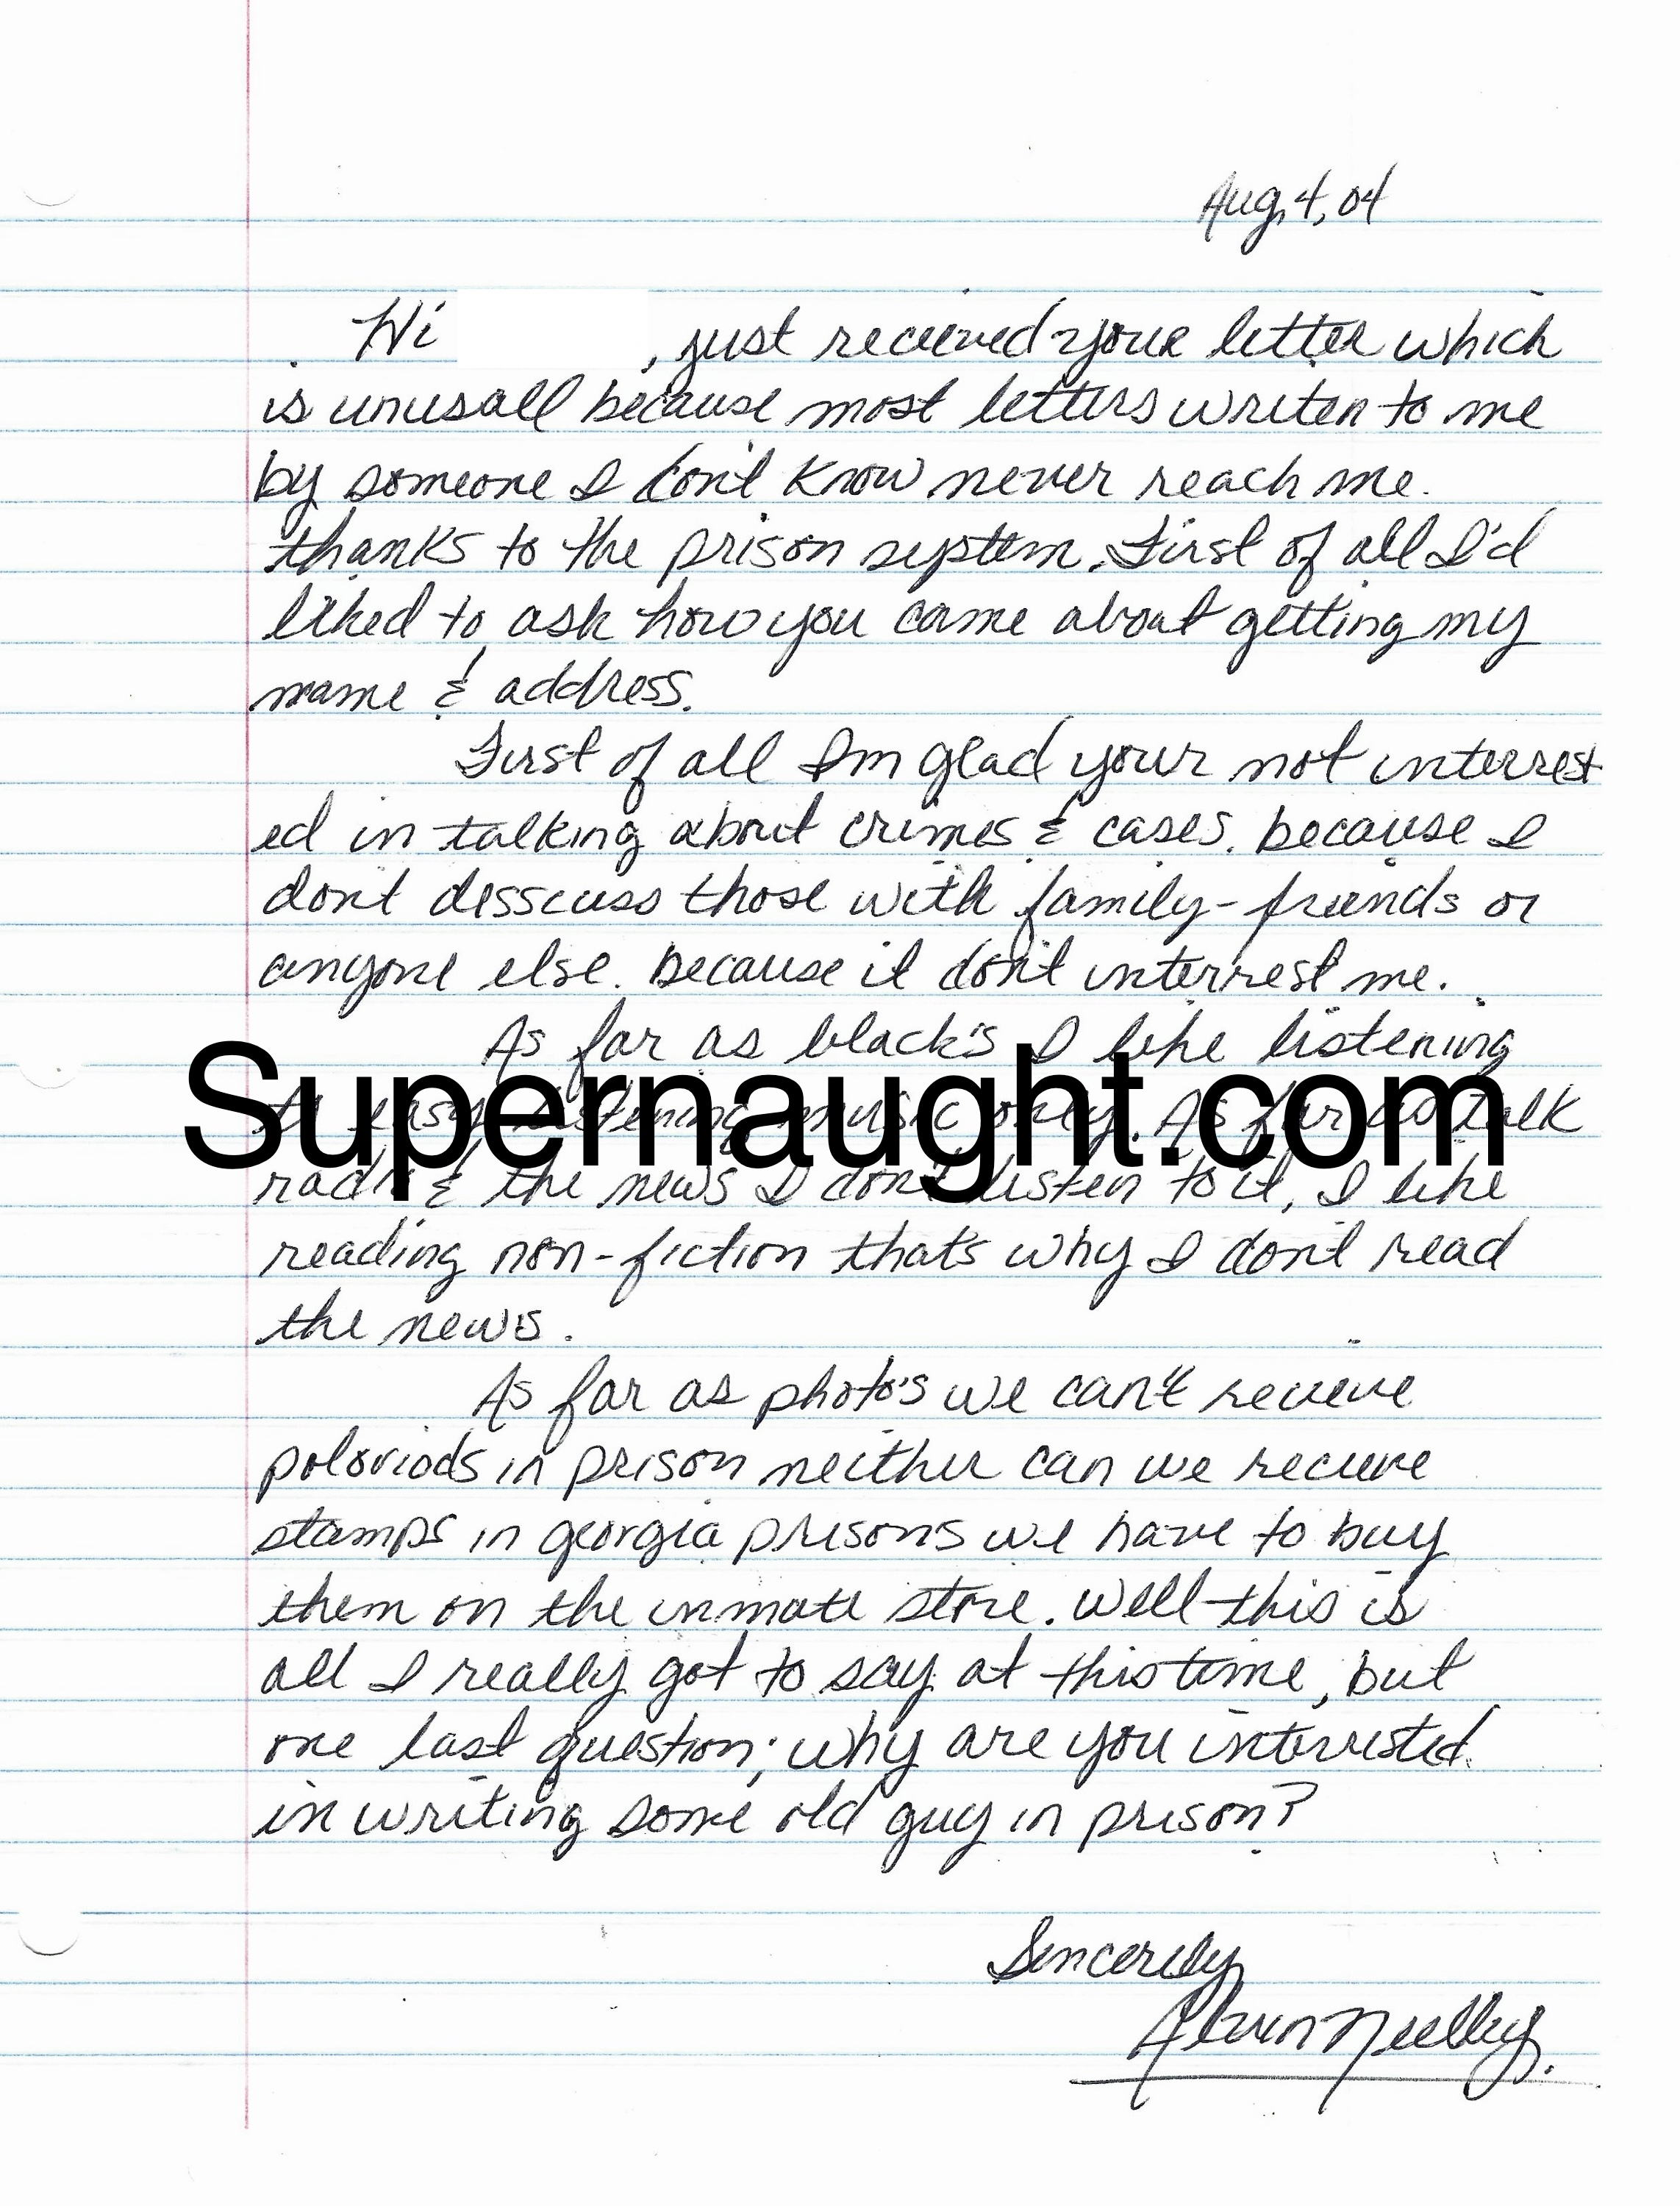 Aug, 4, 04
Hi , just recieved your letter which
is unusall because most letters writen to me
by someone I don't know never reach me.
thanks to the prison system. First of all I'd
liked to ask how you came about getting my
name & address.
First of all I'm glad your not interrest
ed in talking about crimes & cases. because I
don't desscuss those with family-friends or
anyone else. because it don't interrest me.
As far as black's I like listening
to easy listening music only. As far as talk
Supernaught.com
radio & the news I don't listen to it, I like
reading non-fiction that's why I don't read
the news.
As far as photo's we can't recieve
poloriods in prison neither can we recieve
stamps in georgia prisons we have to buy
them on the inmate store. Well this is
all I really got to say at this time, but
one last question; why are you interested
in writing some old guy in prison?
Sincerely
Alvin Neelley.